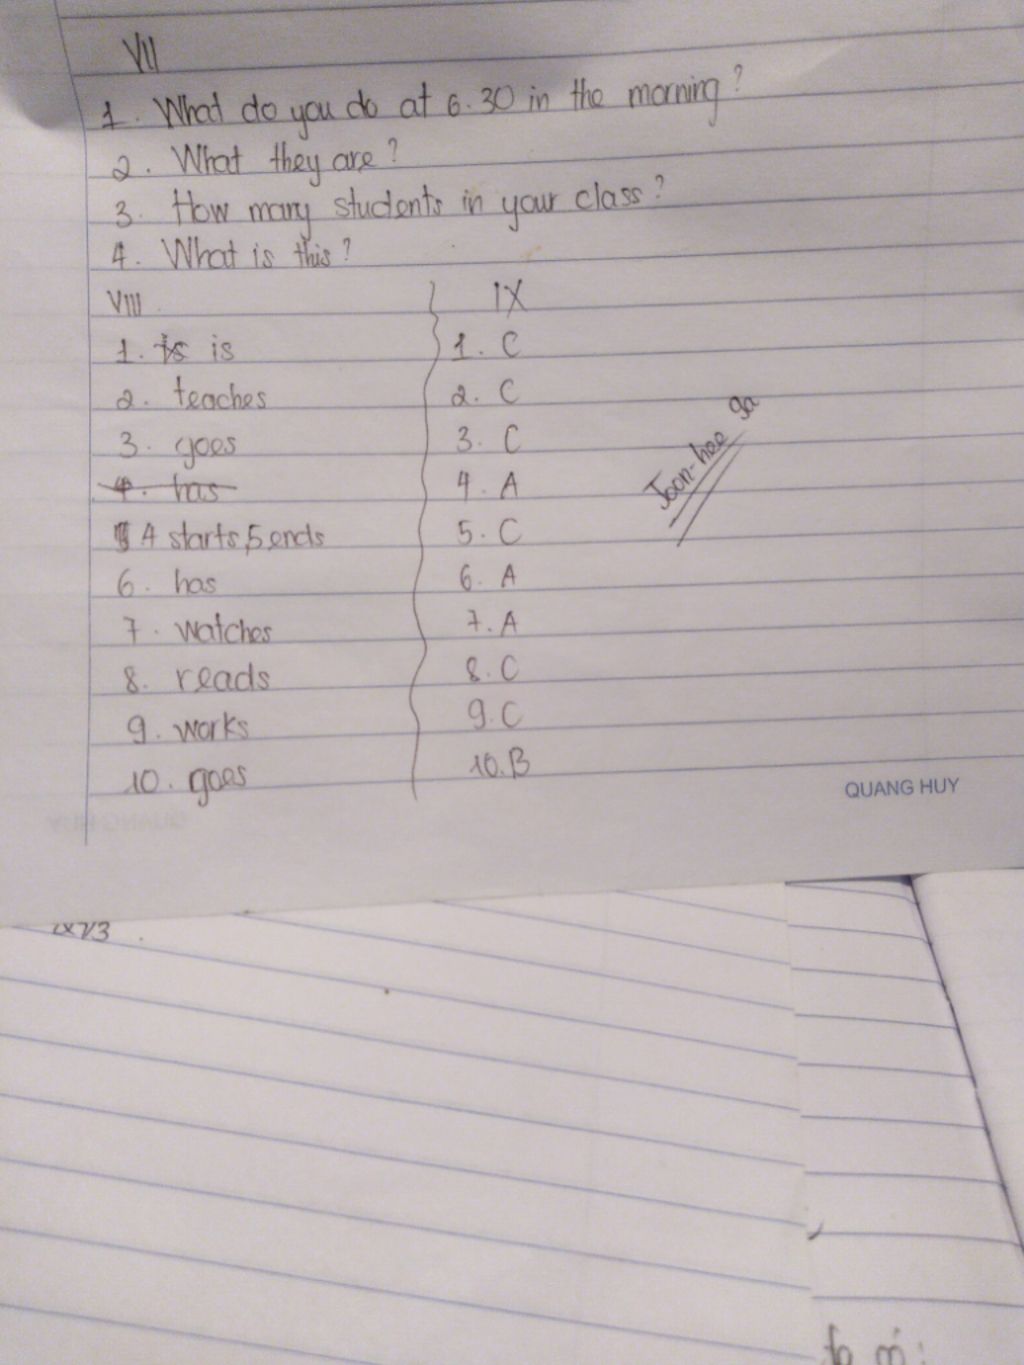 VII
1. What do you do at 6.30 in the morning?
2. What they are?
3. How many students in your class?
4. What is this?
VIII
1. is is
2. teaches
3. goes
4. has
4 starts, 5 ends
6. has
7. watches
8. reads
9. works
10. goes
IX
1. C
2. C
3. C
4. A
5. C
6. A
7. A
8. C
9. C
10. B
Joon-hee ga
QUANG HUY